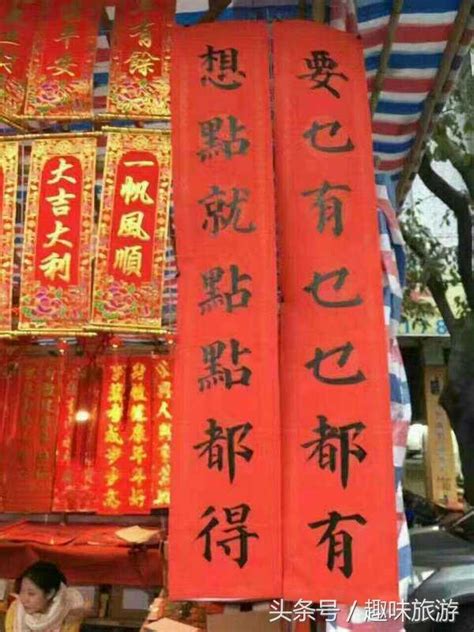 要乜有乜乜都有
想點就點點都得
有餘
平安
一帆風順
大吉大利
头条号／趣味旅游